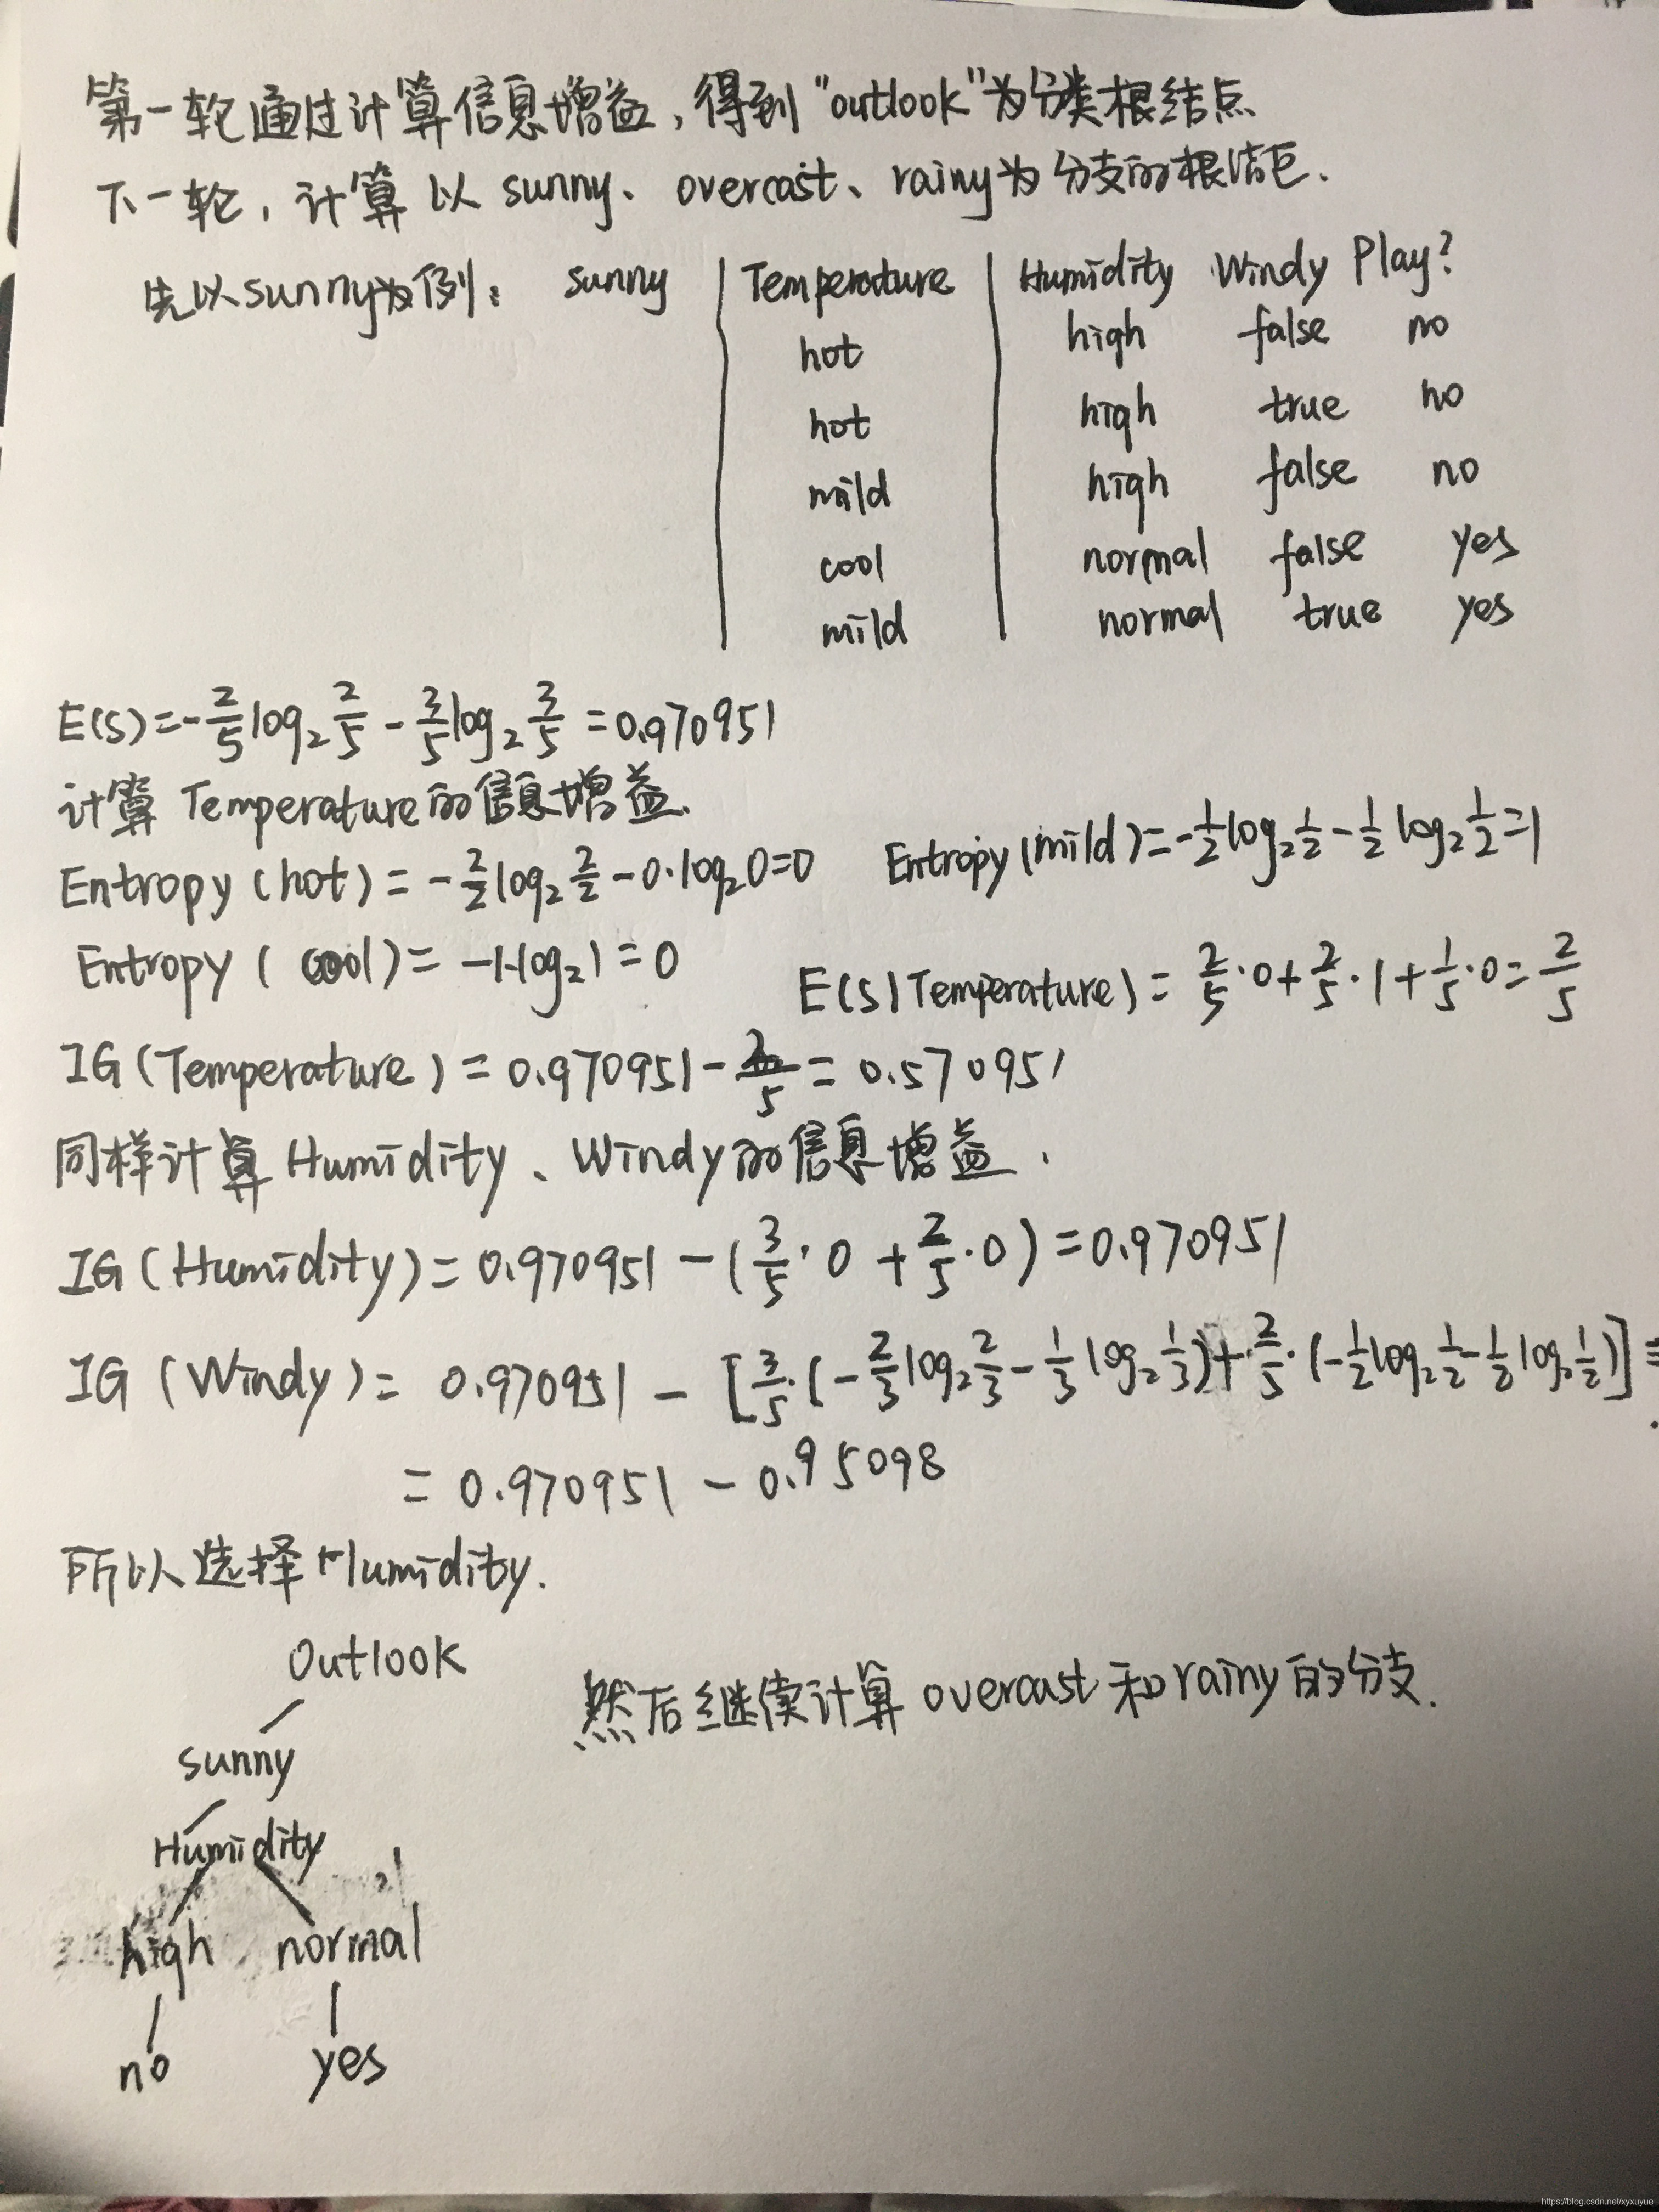 第一轮通过计算信息增益，得到"outlook"为分类根结点
下一轮，计算以 sunny、overcast、rainy为分支的根结点.
先以sunny为例： sunny Temperature Humidity Windy Play?
hot high false no
hot high true no
mild high false no
cool normal false yes
mild normal true yes
E(S)=-2/5log₂2/5-3/5log₂3/5=0.970951
计算Temperature的信息增益.
Entropy(hot)=-2/2log₂2/2-0·log₂0=0 Entropy(mild)=-1/2log₂1/2-1/2log₂1/2=1
Entropy(cool)=-1·log₂1=0 E(S|Temperature)=2/5·0+2/5·1+1/5·0=2/5
IG(Temperature)=0.970951-2/5=0.570951
同样计算Humidity、Windy的信息增益.
IG(Humidity)=0.970951-(3/5·0+2/5·0)=0.970951
IG(Windy)=0.970951-[3/5·(-2/3log₂2/3-1/3log₂1/3)+2/5·(-1/2log₂1/2-1/2log₂1/2)]=
=0.970951-0.95098
所以选择Humidity.
Outlook
然后继续计算overcast和rainy的分支.
sunny
Humidity
high normal
no yes
https://blog.csdn.net/xyxuyue